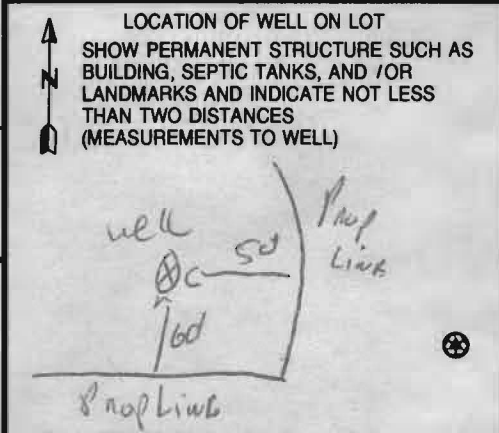 LOCATION OF WELL ON LOT
SHOW PERMANENT STRUCTURE SUCH AS
N
BUILDING, SEPTIC TANKS, AND /OR
LANDMARKS AND INDICATE NOT LESS
THAN TWO DISTANCES
(MEASUREMENTS TO WELL)
well
Prop
Line
Prop Line